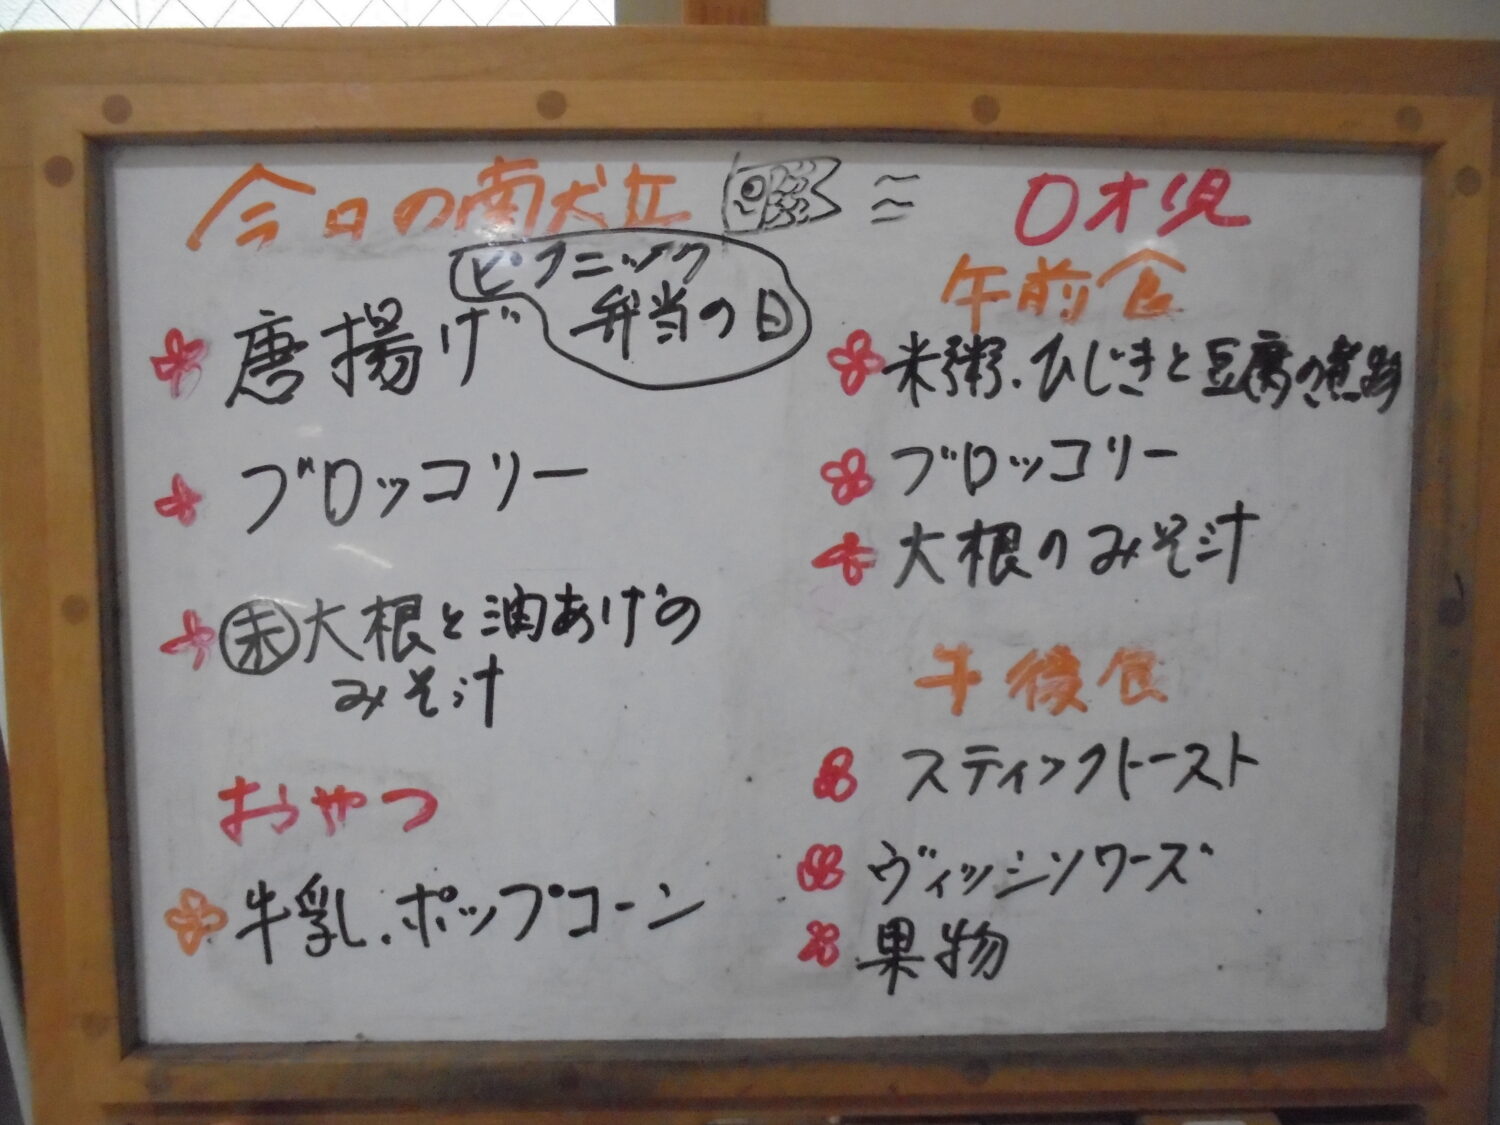 今日の献立
ピクニック
弁当の日
唐揚げ
ブロッコリー
未 大根と油あげの
みそ汁
おやつ
牛乳.ポップコーン
0才児
午前食
米粥.ひじきと豆腐の煮物
ブロッコリー
大根のみそ汁
午後食
スティックトースト
ヴィッシソワーズ
果物